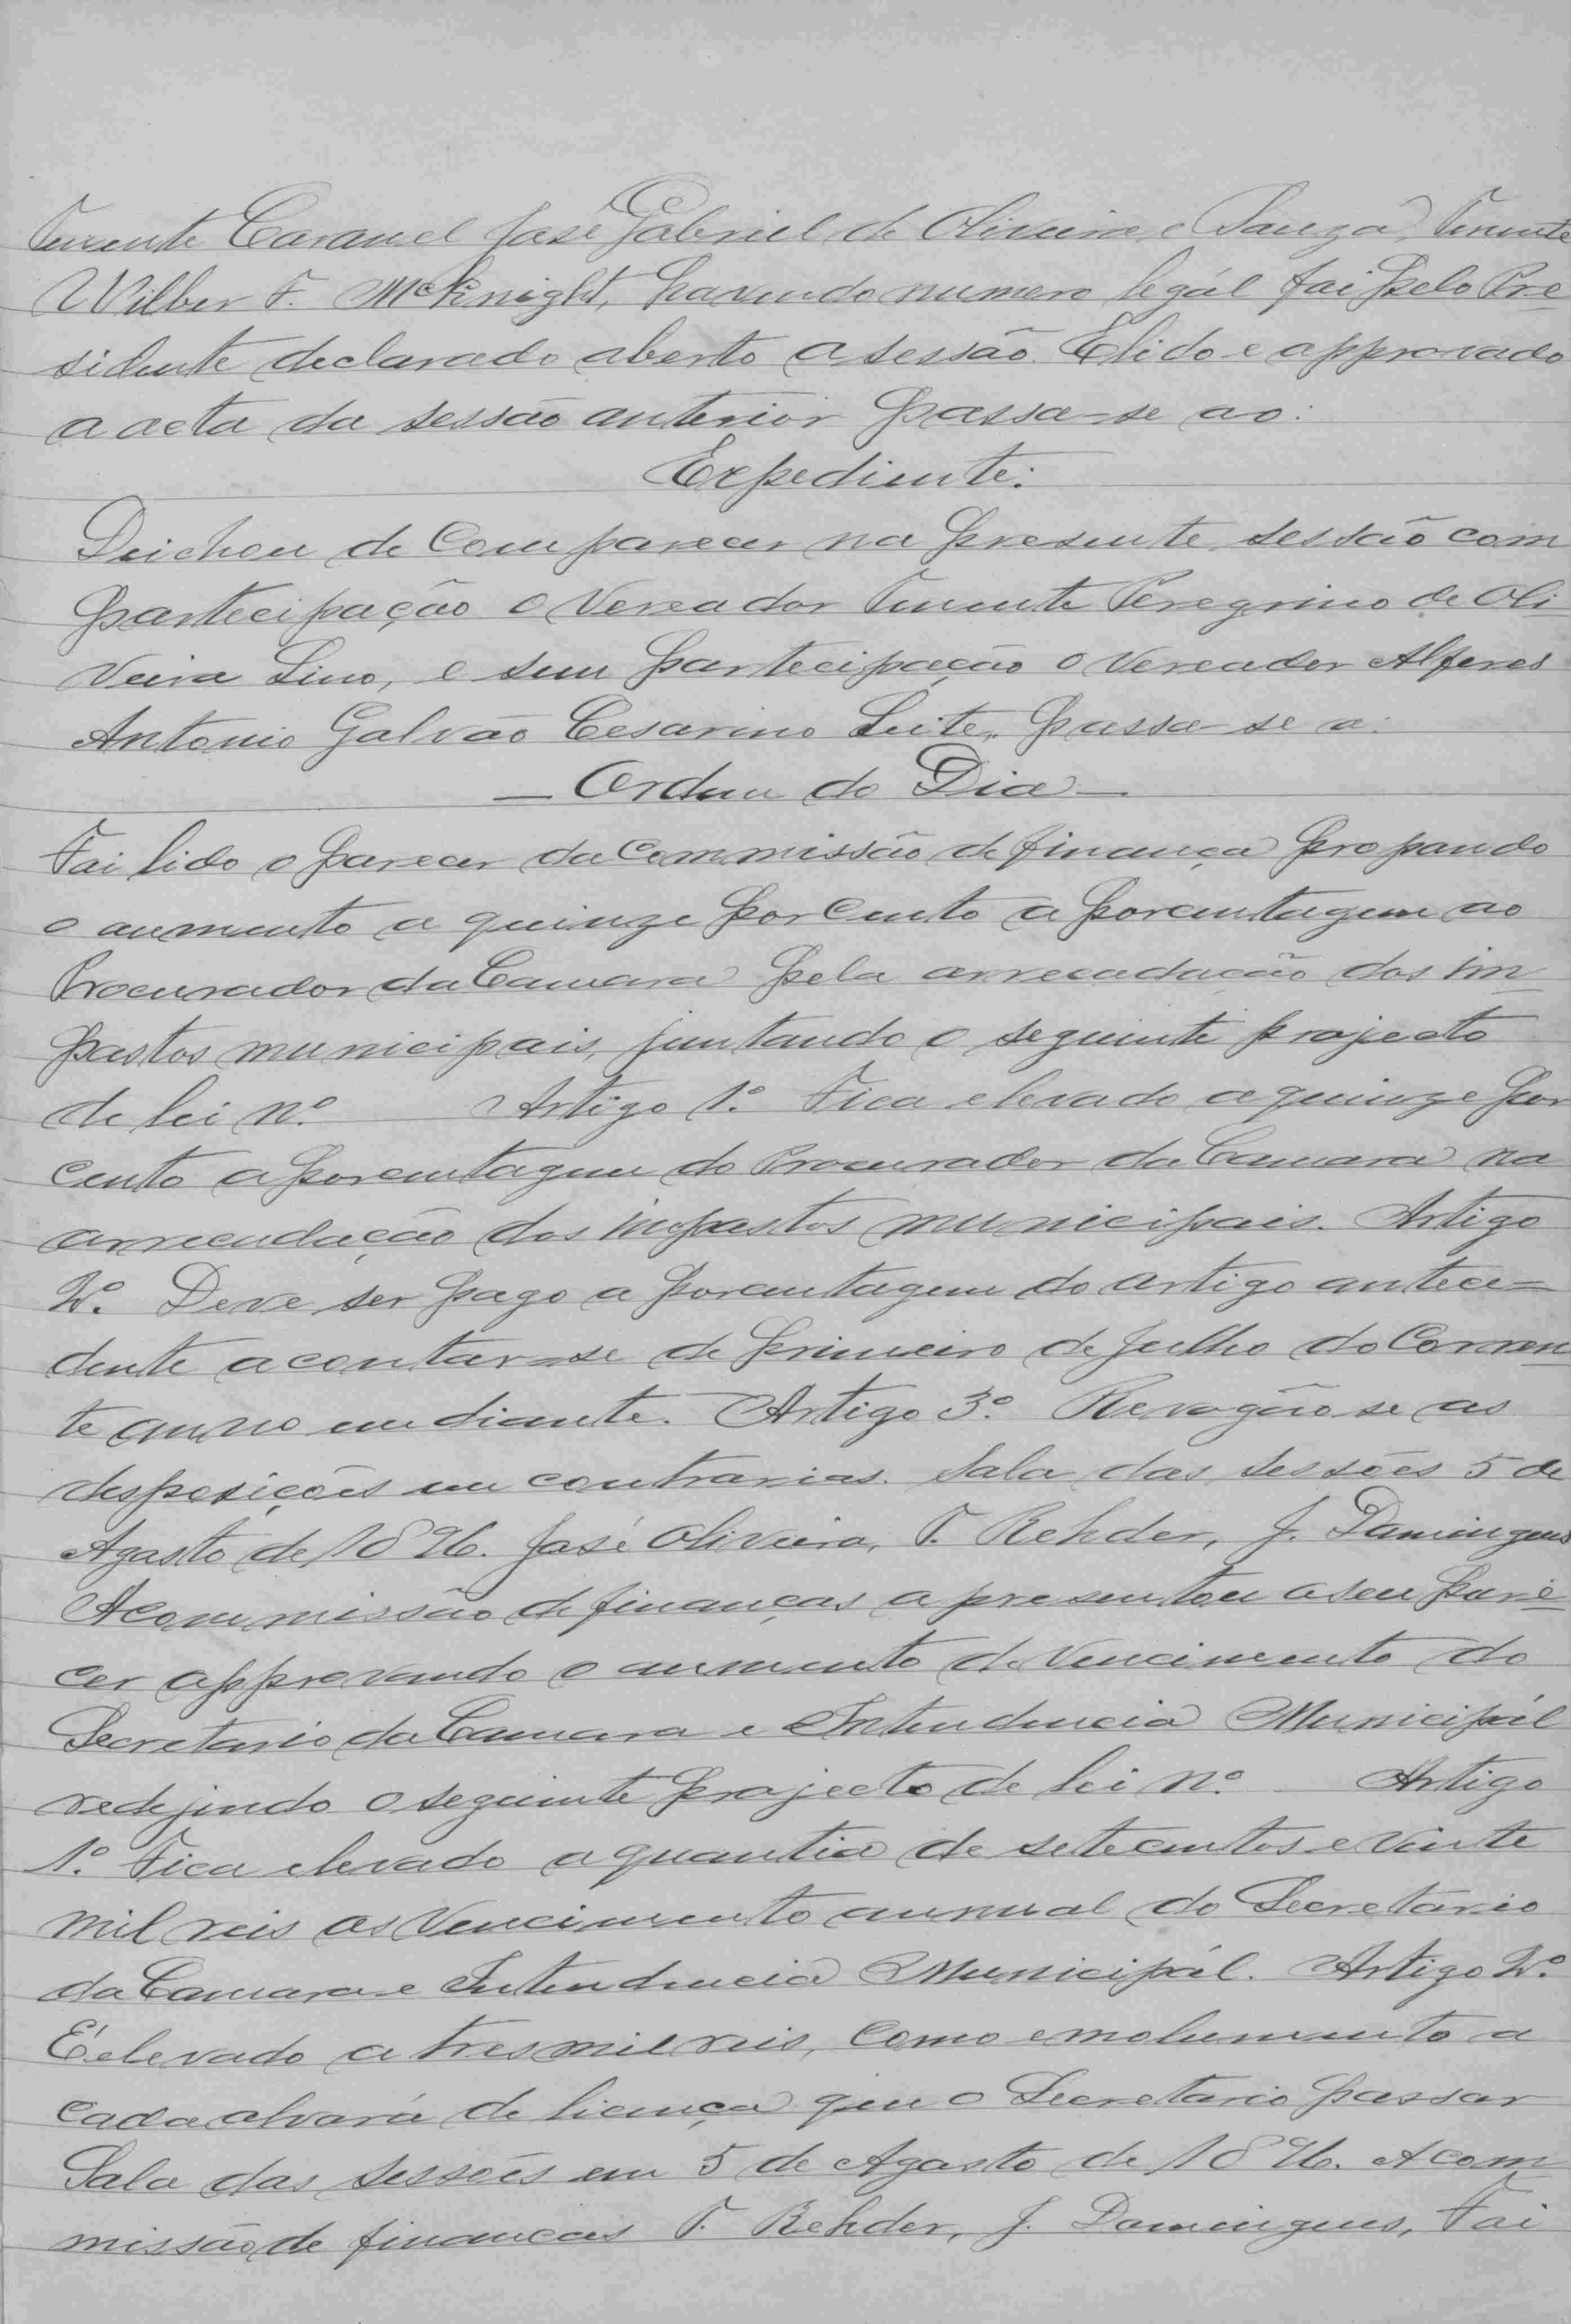 Tenente Coronel José Gabriel de Oliveira e Souza, Tenente
Wilber F. McKnight, havendo numero legál foi pelo Pre-
sidente declarado aberto a sessão. E lido e approvado
a acta da sessão anterior passa-se ao:
Expediente:
Deichou de Comparecer na presente sessão com
partecipação o Vereador Tenente Peregrino de Oli-
veira Lino, e sem partecipação o Vereador Alferes
Antonio Galvão Cesarino Leite, passa-se a:
— Ordem do Dia —
Foi lido o parecer da Commissão de finança propondo
o aumento a quinze por Cento a porcentagem ao
Procurador da Camara pela arrecadação dos im-
postos municipais, juntando o seguinte projecto
de lei nº. Artigo 1º. Fica elevado a quinze por
cento a porcentagem do Procurador da Camara na
arrecadação dos impostos municipais. Artigo
2º. Deve ser pago a porcentagem do artigo antece-
dente a contar-se de primeiro de Julho do Corren-
te anno em diante. Artigo 3º. Revogão-se as
desposições em contrarias. Sala das sessões 5 de
Agosto de 1896. José Oliveira, F. Rehder, J. Domingues
A commissão de finanças apresentou o seu pare-
cer approvando o aumento do Vencimento do
Secretario da Camara e Intendencia Municipál
redijindo o seguinte projecto de lei nº. Artigo
1º. Fica elevado a quantia de setecentos e vinte
mil reis os Vencimento annual do Secretario
da Camara e Intendencia Municipál. Artigo 2º.
É elevado a tres mil reis, como emolumento a
cada alvará de licença que o Secretario passar
Sala das sessões em 5 de Agosto de 1896. A com-
missão de financas F. Rehder, J. Domingues, Foi